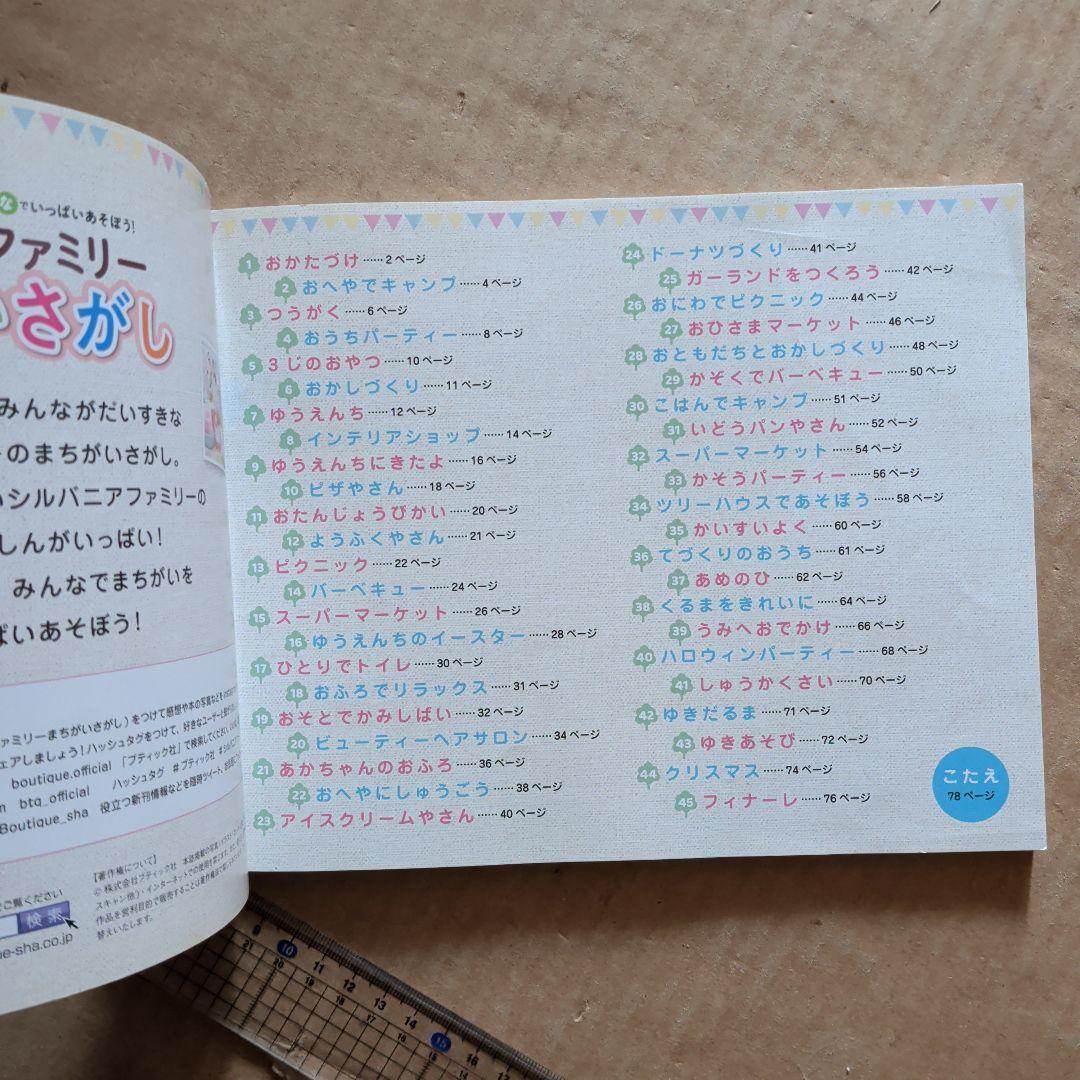 なでいっぱいあそぼう!
ファミリー
さがし
みんながだいすきな
のまちがいさがし。
シルバニアファミリーの
しんがいっぱい!
みんなでまちがいを
ぱいあそぼう!
ファミリーまちがいさがし)をつけて感想や本の写真などを
ェアしましょう!ハッシュタグをつけて、好きなユーザーと
boutique.official 「ブティック社」で検索してください。
btq_official ハッシュタグ #ブティック社
Boutique_sha 役立つ新刊情報などを随時ツイート。
【著作権について】
© 株式会社ブティック社 本誌掲載の写真・イラスト・
スキャン他)・インターネットでの使用を禁じます。
作品を営利目的で販売することは著作権法で
替えいたします。
ご覧ください
検索
ue-sha.co.jp
1 おかたづけ……2ページ
2 おへやでキャンプ……4ページ
3 つうがく……6ページ
4 おうちパーティー……8ページ
5 3じのおやつ……10ページ
6 おかしづくり……11ページ
7 ゆうえんち……12ページ
8 インテリアショップ……14ページ
9 ゆうえんちにきたよ……16ページ
10 ピザやさん……18ページ
11 おたんじょうびかい……20ページ
12 ようふくやさん……21ページ
13 ピクニック……22ページ
14 バーベキュー……24ページ
15 スーパーマーケット……26ページ
16 ゆうえんちのイースター……28ページ
17 ひとりでトイレ……30ページ
18 おふろでリラックス……31ページ
19 おそとでかみしばい……32ページ
20 ビューティーヘアサロン……34ページ
21 あかちゃんのおふろ……36ページ
22 おへやにしゅうごう……38ページ
23 アイスクリームやさん……40ページ
24 ドーナツづくり……41ページ
25 ガーランドをつくろう……42ページ
26 おにわでピクニック……44ページ
27 おひさまマーケット……46ページ
28 おともだちとおかしづくり……48ページ
29 かぞくでバーベキュー……50ページ
30 こはんでキャンプ……51ページ
31 いどうパンやさん……52ページ
32 スーパーマーケット……54ページ
33 かそうパーティー……56ページ
34 ツリーハウスであそぼう……58ページ
35 かいすいよく……60ページ
36 てづくりのおうち……61ページ
37 あめのひ……62ページ
38 くるまをきれいに……64ページ
39 うみへおでかけ……66ページ
40 ハロウィンパーティー……68ページ
41 しゅうかくさい……70ページ
42 ゆきだるま……71ページ
43 ゆきあそび……72ページ
44 クリスマス……74ページ
45 フィナーレ……76ページ
こたえ
78ページ
9 10 11 12 13 14 15 16 17
21 20 19 18 17 16 15 14